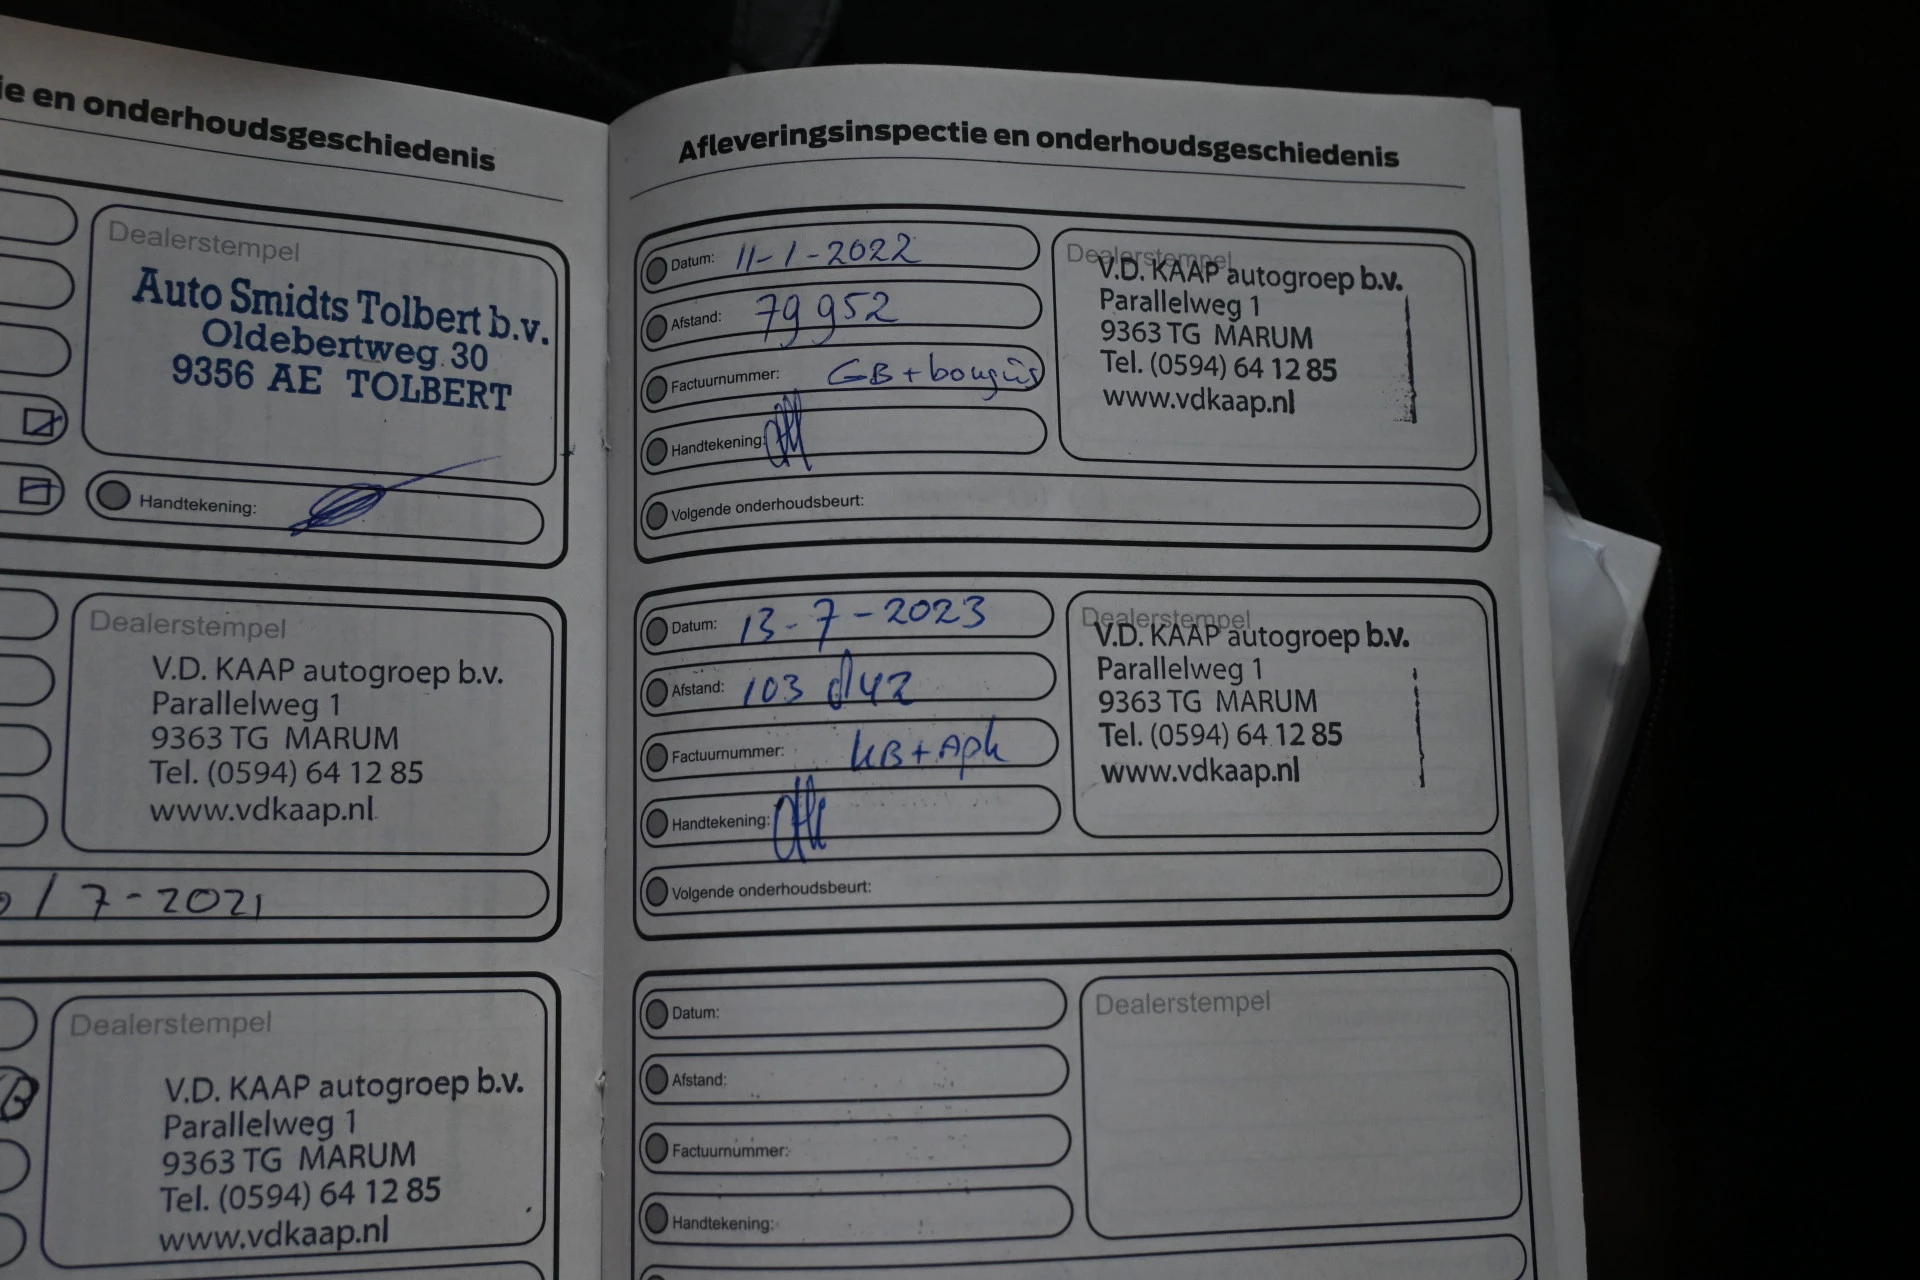 ie en onderhoudsgeschiedenis
Dealerstempel
Auto Smidts Tolbert b.v.
Oldebertweg 30
9356 AE TOLBERT
Handtekening:
Dealerstempel
V.D. KAAP autogroep b.v.
Parallelweg 1
9363 TG MARUM
Tel. (0594) 64 12 85
www.vdkaap.nl
/ 7-2021
Dealerstempel
B
V.D. KAAP autogroep b.v.
Parallelweg 1
9363 TG MARUM
Tel. (0594) 64 12 85
www.vdkaap.nl
Afleveringsinspectie en onderhoudsgeschiedenis
Datum: 11-1-2022
Afstand: 79952
Factuurnummer: GB + bougies
Handtekening:
Volgende onderhoudsbeurt:
Dealerstempel
V.D. KAAP autogroep b.v.
Parallelweg 1
9363 TG MARUM
Tel. (0594) 64 12 85
www.vdkaap.nl
Datum: 13-7-2023
Afstand: 103
Factuurnummer: KB + APK
Handtekening:
Volgende onderhoudsbeurt:
Dealerstempel
V.D. KAAP autogroep b.v.
Parallelweg 1
9363 TG MARUM
Tel. (0594) 64 12 85
www.vdkaap.nl
Datum:
Afstand:
Factuurnummer:
Handtekening:
Dealerstempel